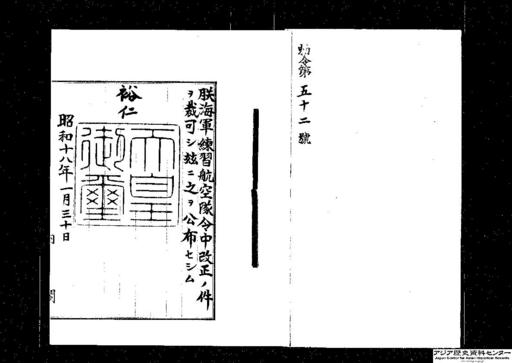 勅令第五十二號
朕海軍練習航空隊令中改正ノ件
ヲ裁可シ玆ニ之ヲ公布セシム
裕仁
天皇御璽
昭和十八年一月三十日
内閣
アジア歴史資料センター
Japan Center for Asian Historical Records